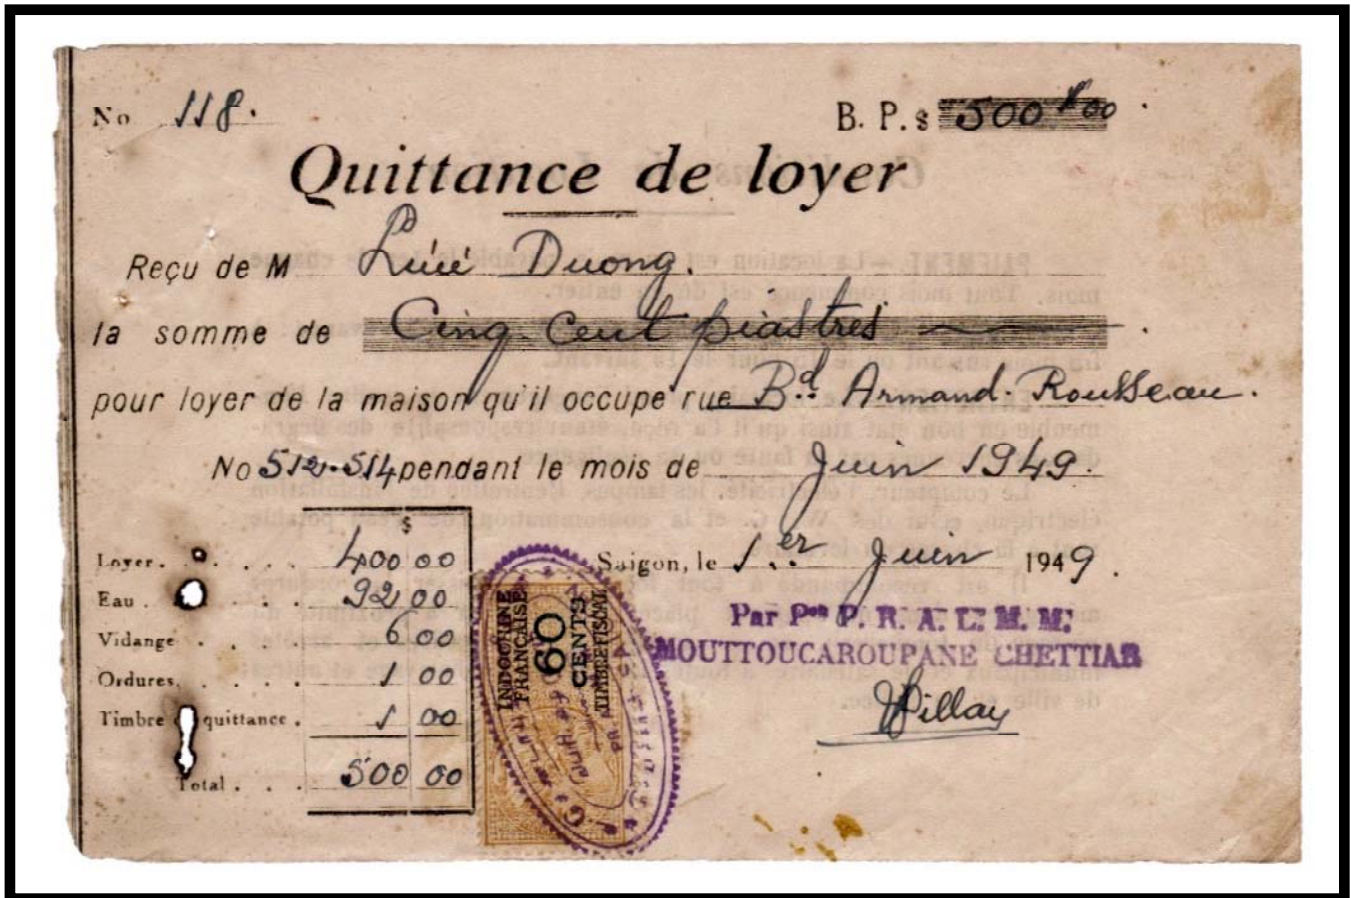 No 118.
B. P. $ 500 $ 00
Quittance de loyer
Reçu de M Duong.
la somme de Cinq cent piastres
pour loyer de la maison qu'il occupe rue Bd Armand-Rousseau.
No 512-514 pendant le mois de Juin 1949.
$
Loyer. 400 00
Eau 92 00
Vidange 6 00
Ordures. 1 00
Timbre quittance. 1 00
Total 500 00
Saigon, le 1er Juin 1949.
Par Pon P. R. A. L. M. M.
MOUTTOUCAROUPANE CHETTIAR
Pillay
INDOCHINE
FRANÇAISE
60
CENTS
TIMBRE FISCAL